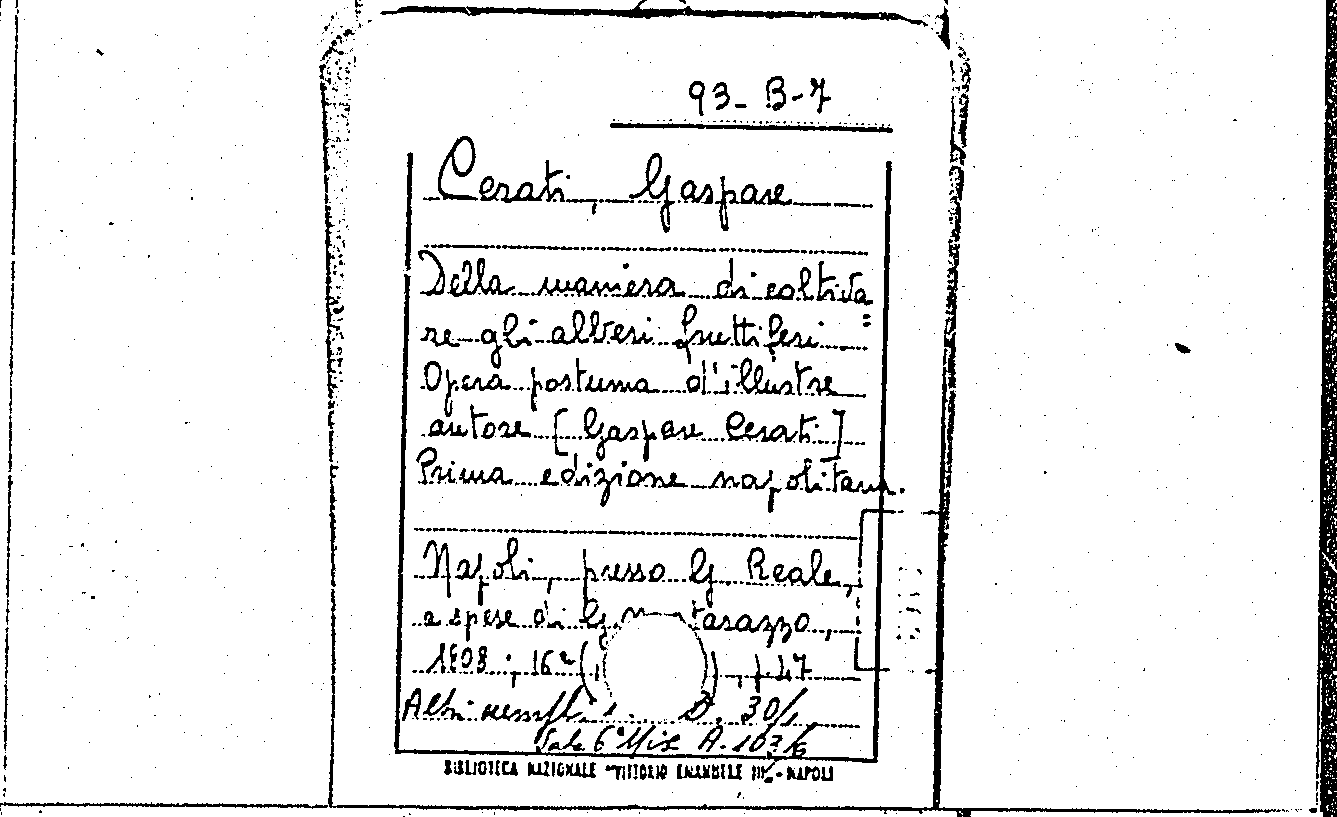 93-B-7
Cerati, Gaspare
Della maniera di coltiva=
re gli alberi fruttiferi
Opera postuma d'illustre
autore [Gaspare Cerati]
Prima edizione napolitana.
Napoli, presso G. Reale,
a spese di G.
1808; 16°
Altri D. 30/1
Sala 6ª Mis A. 103/6
BIBLIOTECA NAZIONALE "VITTORIO EMANUELE III" - NAPOLI